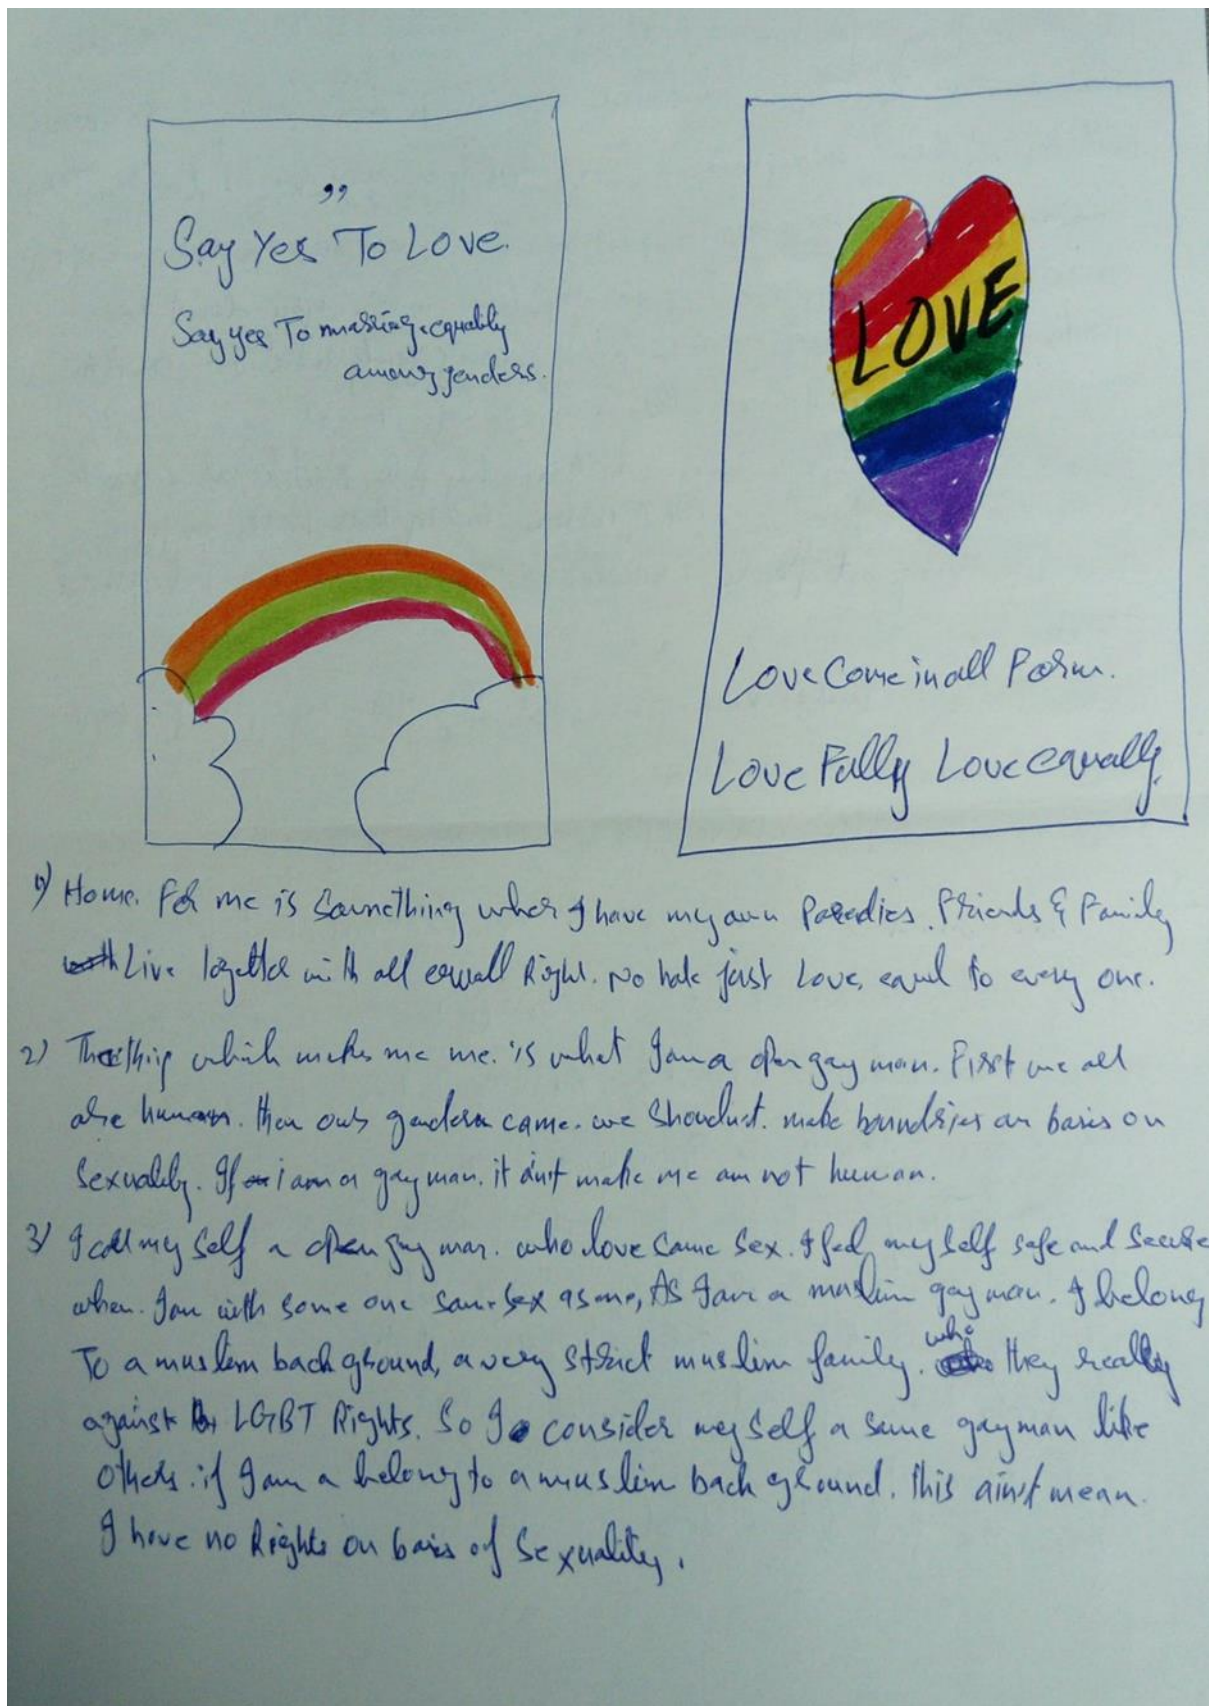 ”
Say Yes To Love.
Say yes To marriage equally
among genders.
LOVE
Love Come in all Form.
Love Fully Love equally.
1) Home. For me is Somnething wher I have my own Paredies. Friends & Family
Live together with all equall Right. No hate just Love, equal to every one.
2) The thing which makes me me. is what I am a open gay man. First we all
are human. then our genders came. we Shouldnt. make boundries on basis on
Sexuality. If i am a gay man. it ain't make me am not human.
3) I call my self a open gay man. who love same sex. I feel my self safe and Secure
when. I am with some one same sex as me, As I am a muslim gay man. I belong
To a muslim back ground, a very strict muslim family. who they really
against LGBT Rights. So I consider my self a same gay man like
others. if I am a belong to a muslim back ground. this ain't mean.
I have no Rights on basis of Sexuality.